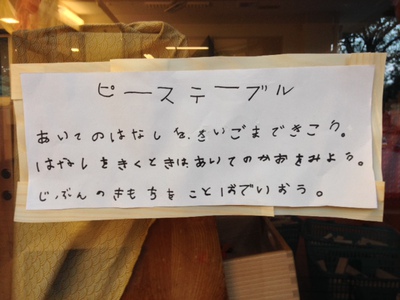 ピーステーブル
あいてのはなしを、さいごまできこう。
はなしをきくときは、あいてのかおをみよう。
じぶんのきもちをことばでいおう。